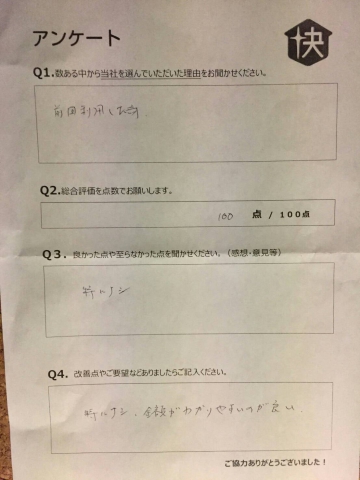 アンケート
快
Q1.数ある中から当社を選んでいただいた理由をお聞かせください。
前回利用した為
Q2.総合評価を点数でお願いします。
100 点 / 100点
Q3. 良かった点や至らなかった点を聞かせください。（感想・意見等）
特にナシ
Q4. 改善点やご要望などありましたらご記入ください。
特にナシ、金額がわかりやすいのが良い、
ご協力ありがとうございました！